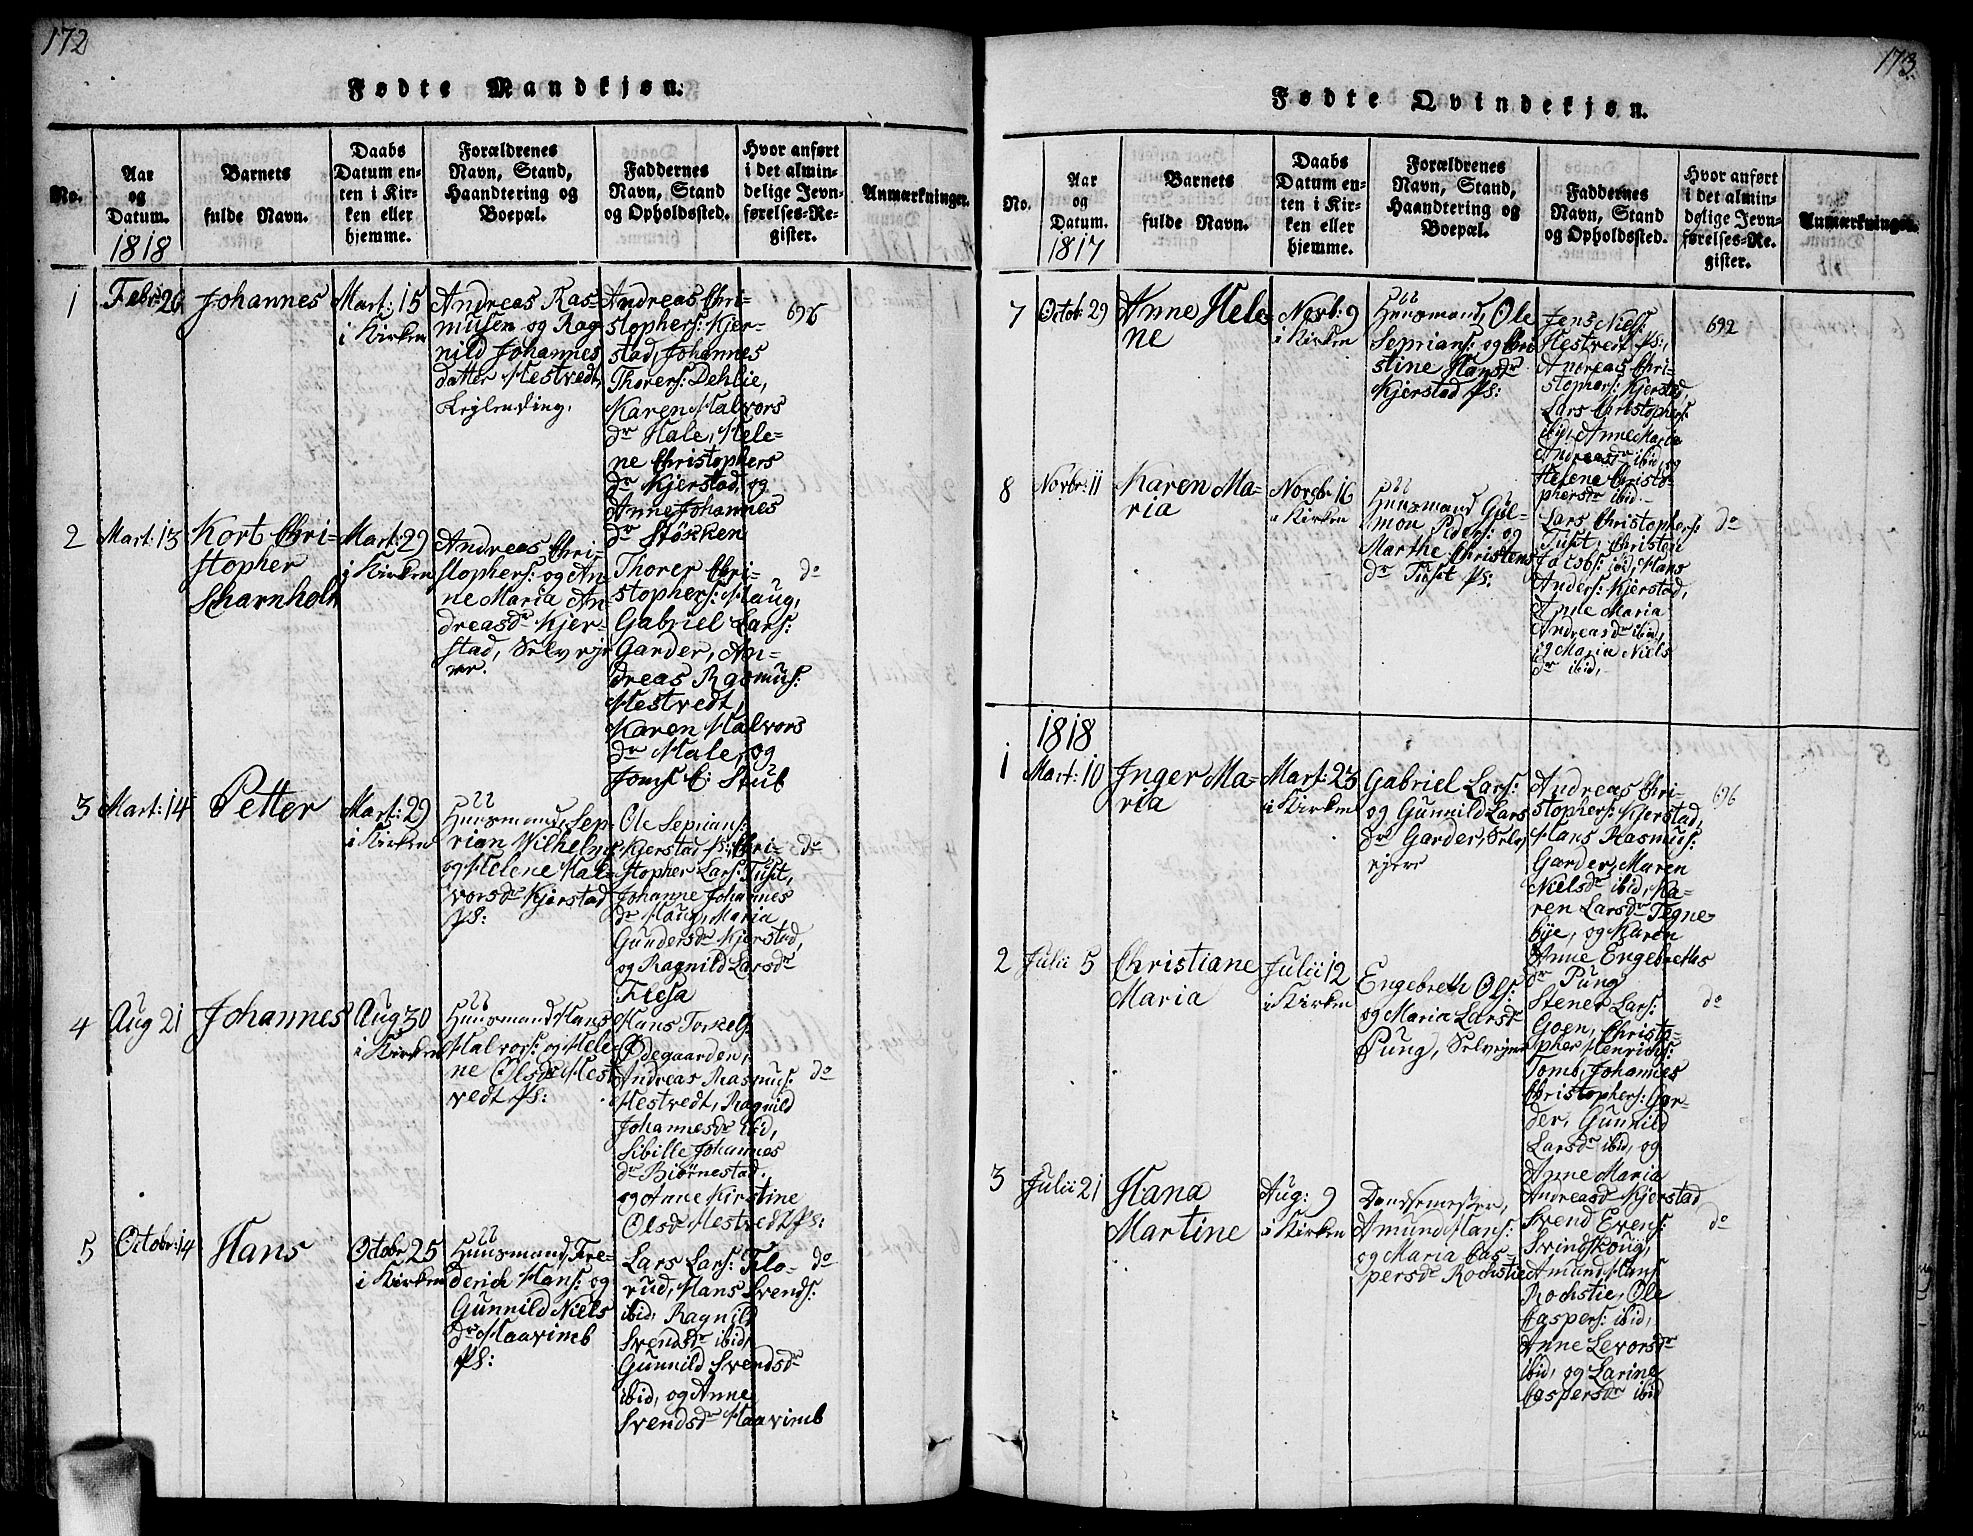 172
Fødte Mandkjøn.
No.
Aar
og
Datum.
1818
Barnets
fulde Navn.
Daabs
Datum en-
ten i Kir-
ken eller
hjemme.
Forældrenes
Navn, Stand,
Haandtering og
Boepæl.
Faddernes
Navn, Stand
og Opholdssted.
Hvor anført
i det almin-
delige Jevn-
førelses-Re-
gister.
Anmærkninger.
1
Febr: 26
Johannes
Mart: 15
i Kirken
Andreas Ras-
musen og Rag
nild Johannes
datter Hestvedt,
Leilending.
Andreas Chri-
stophers: Kjer-
stad, Johannes
Thorers: Dehlie,
Karen Halvors
dr Hale, Hele-
ne Christophers
dr Kjerstad, og
Anne Johannes
dr Støkken
696
2
Mart: 13
Kort Chri-
stopher
Scharnholt
Mart: 29
i Kirken
Andreas Chri-
stophers: og An-
ne Maria An-
dreasdr Kjer-
stad, Selveje
rer.
Thorer Chri-
stophers: Haug,
Gabriel Lars:
Garder, An-
dreas Rasmus:
Hestvedt,
Karen Halvors
dr Hale, og
Jomf: C: Stub
do
3
Mart: 14
Petter
Mart: 29
i Kirken
Huusmand, Sep-
rian Wilhelms
og Helene Hal-
vorsdr Kjerstad
Ps:
Ole Seprians:
Kjerstad Ps:, Chri-
stopher Lars: Tust,
Johanne Johannes
dr Haug, Maria
Gundersdr Kjerstad,
og Ragnild Larsdr
Flesa
do
4
Aug 21
Johannes
Aug 30
i Kirken
Huusmand Hans
Halvors: og Hele-
ne Olsdr Hest
vedt Ps:
Hans Torkels
Ødegaarden,
Andreas Rasmus:
Hestvedt, Ragnild
Johannesdr ibid,
Sibille Johannes
dr Biørnestad.
og Anne Kirstine
Olsdr Hestvedt Ps:
do
5
Octobr: 14
Hans
Octobr 25
i Kirken
Huusmand, Fre-
derich Hans: og
Gunnild Niels
dr Haavimb
Ps:
Lars Lars: Flo-
rud, Hans Svends:
ibid, Ragnild
Svendsdr ibid,
Gunnild Svendsdr
ibid, og Anne
Svendsdr Haavimb
do
173.
Fødte Qvindekjøn.
No.
Aar
og
Datum.
1817
Barnets
fulde Navn.
Daabs
Datum en-
ten i Kir-
ken eller
hjemme.
Forældrenes
Navn, Stand,
Haandtering og
Boepæl.
Faddernes
Navn, Stand
og Opholdssted.
Hvor anført
i det almin-
delige Jevn-
førelses-Re-
gister.
Anmærkninger.
7
Octob: 29
Anne Hele
ne
Novb: 9
i Kirken
Huusmand, Ole
Seprians: og Chri
stine Hansdr
Kjerstad Ps:
Jens Niels:
Hestvedt Ps:,
Andreas Chri-
stophers: Kjerstad,
Lars Christophers:
ibid, Anne Maria
Andreasdr ibid, og
Helene Christo-
phersdr ibid.
692
8
Novbr: 11
Karen Ma-
ria
Novbr 16
i Kirken
Huusmand Gul-
mon Peders: og
Marthe Christens
dr Tust Ps:
Lars Christophers:
Tust, Christen
Jacobs: ibid, Hans
Anders: Kjerstad,
Anne Maria
Andreasdr ibid,
og Maria Niels
dr ibid,
do
1818
1
Mart: 10
Inger Ma-
ria
Mart: 23
i Kirken
Gabriel Lars:
og Gunnild Lars
dr Garder, Selv
ejere
Andreas Chri-
stophers: Kjerstad,
Hans Rasmus:
Garder, Maren
Nielsdr ibid, Ka-
ren Larsdr Tegne-
bye, og Karen
Anne Engebreths
dr Pung
696
2
Julii 5
Christiane
Maria
Julii 12
i Kirken
Engebreth Ols:
og Maria Larsdr
Pung, Selvejere
Stener Lars:
Goen, Christo-
pher Henrichs:
Tomb, Johannes
Christophers: Gar-
der, Gunnild
Larsdr ibid, og
Anne Maria
Andreasdr Kjerstad
do
3
Julii 21
Hana
Martine
Aug: 9
i Kirken
Amund Hans:
og Maria Cas-
persdr Rochstie
Svend Evens:
Svindskoug,
Amund Hans:
Rochstie, Ole
Caspers: ibid,
Anne Levorsdr
ibid, og Larine
Caspersdr ibid
do